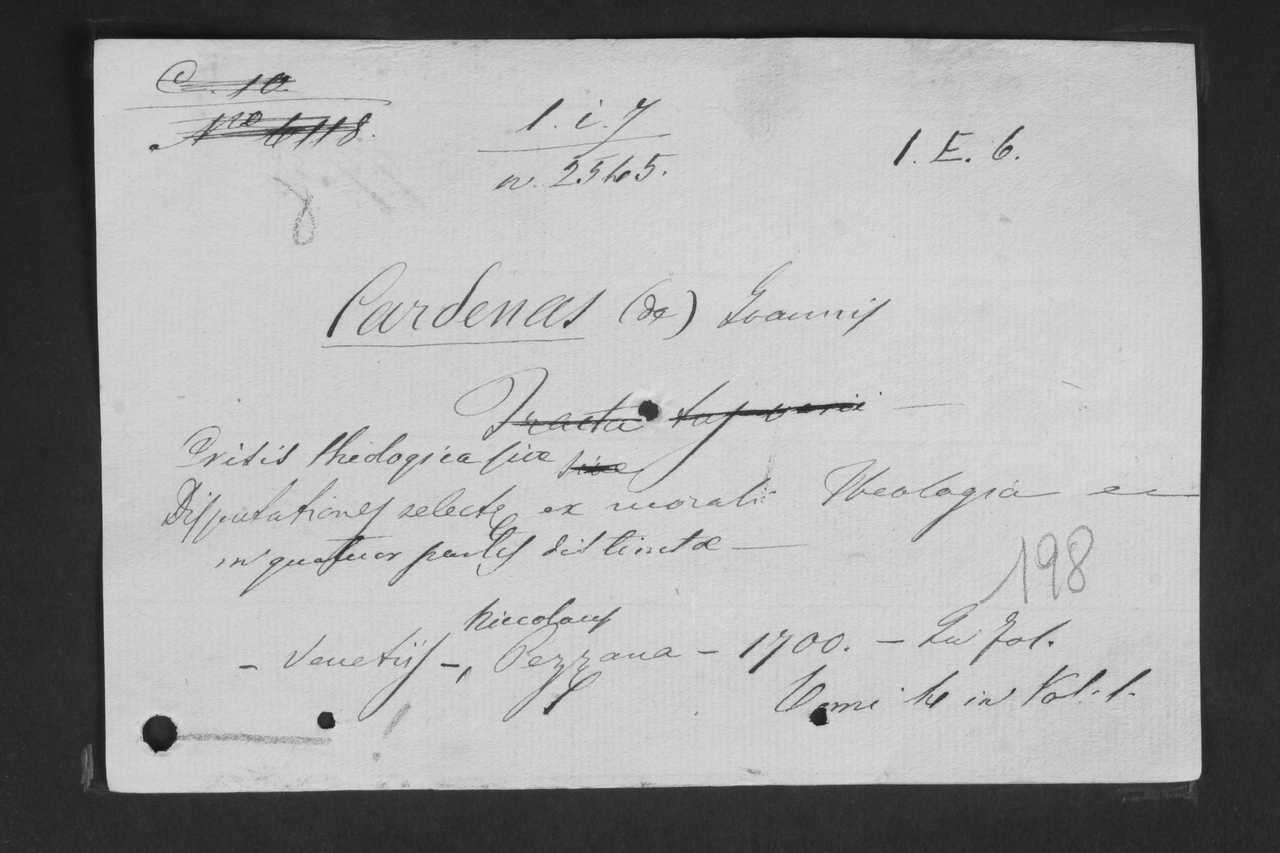 C. 10.
Nro 4118.
1. i. 7
n. 2545.
1. E. 6.
8
Cardenas (de) Ioannis
Tracta
Crisis theologica sive sive
Disputationes selectę ex morali Theologia
in quatuor partes distinctæ —
198
Niccolaus
– Venetiis –, Pezzana – 1700. – In fol.
Tomi 4 in Vol. 1.